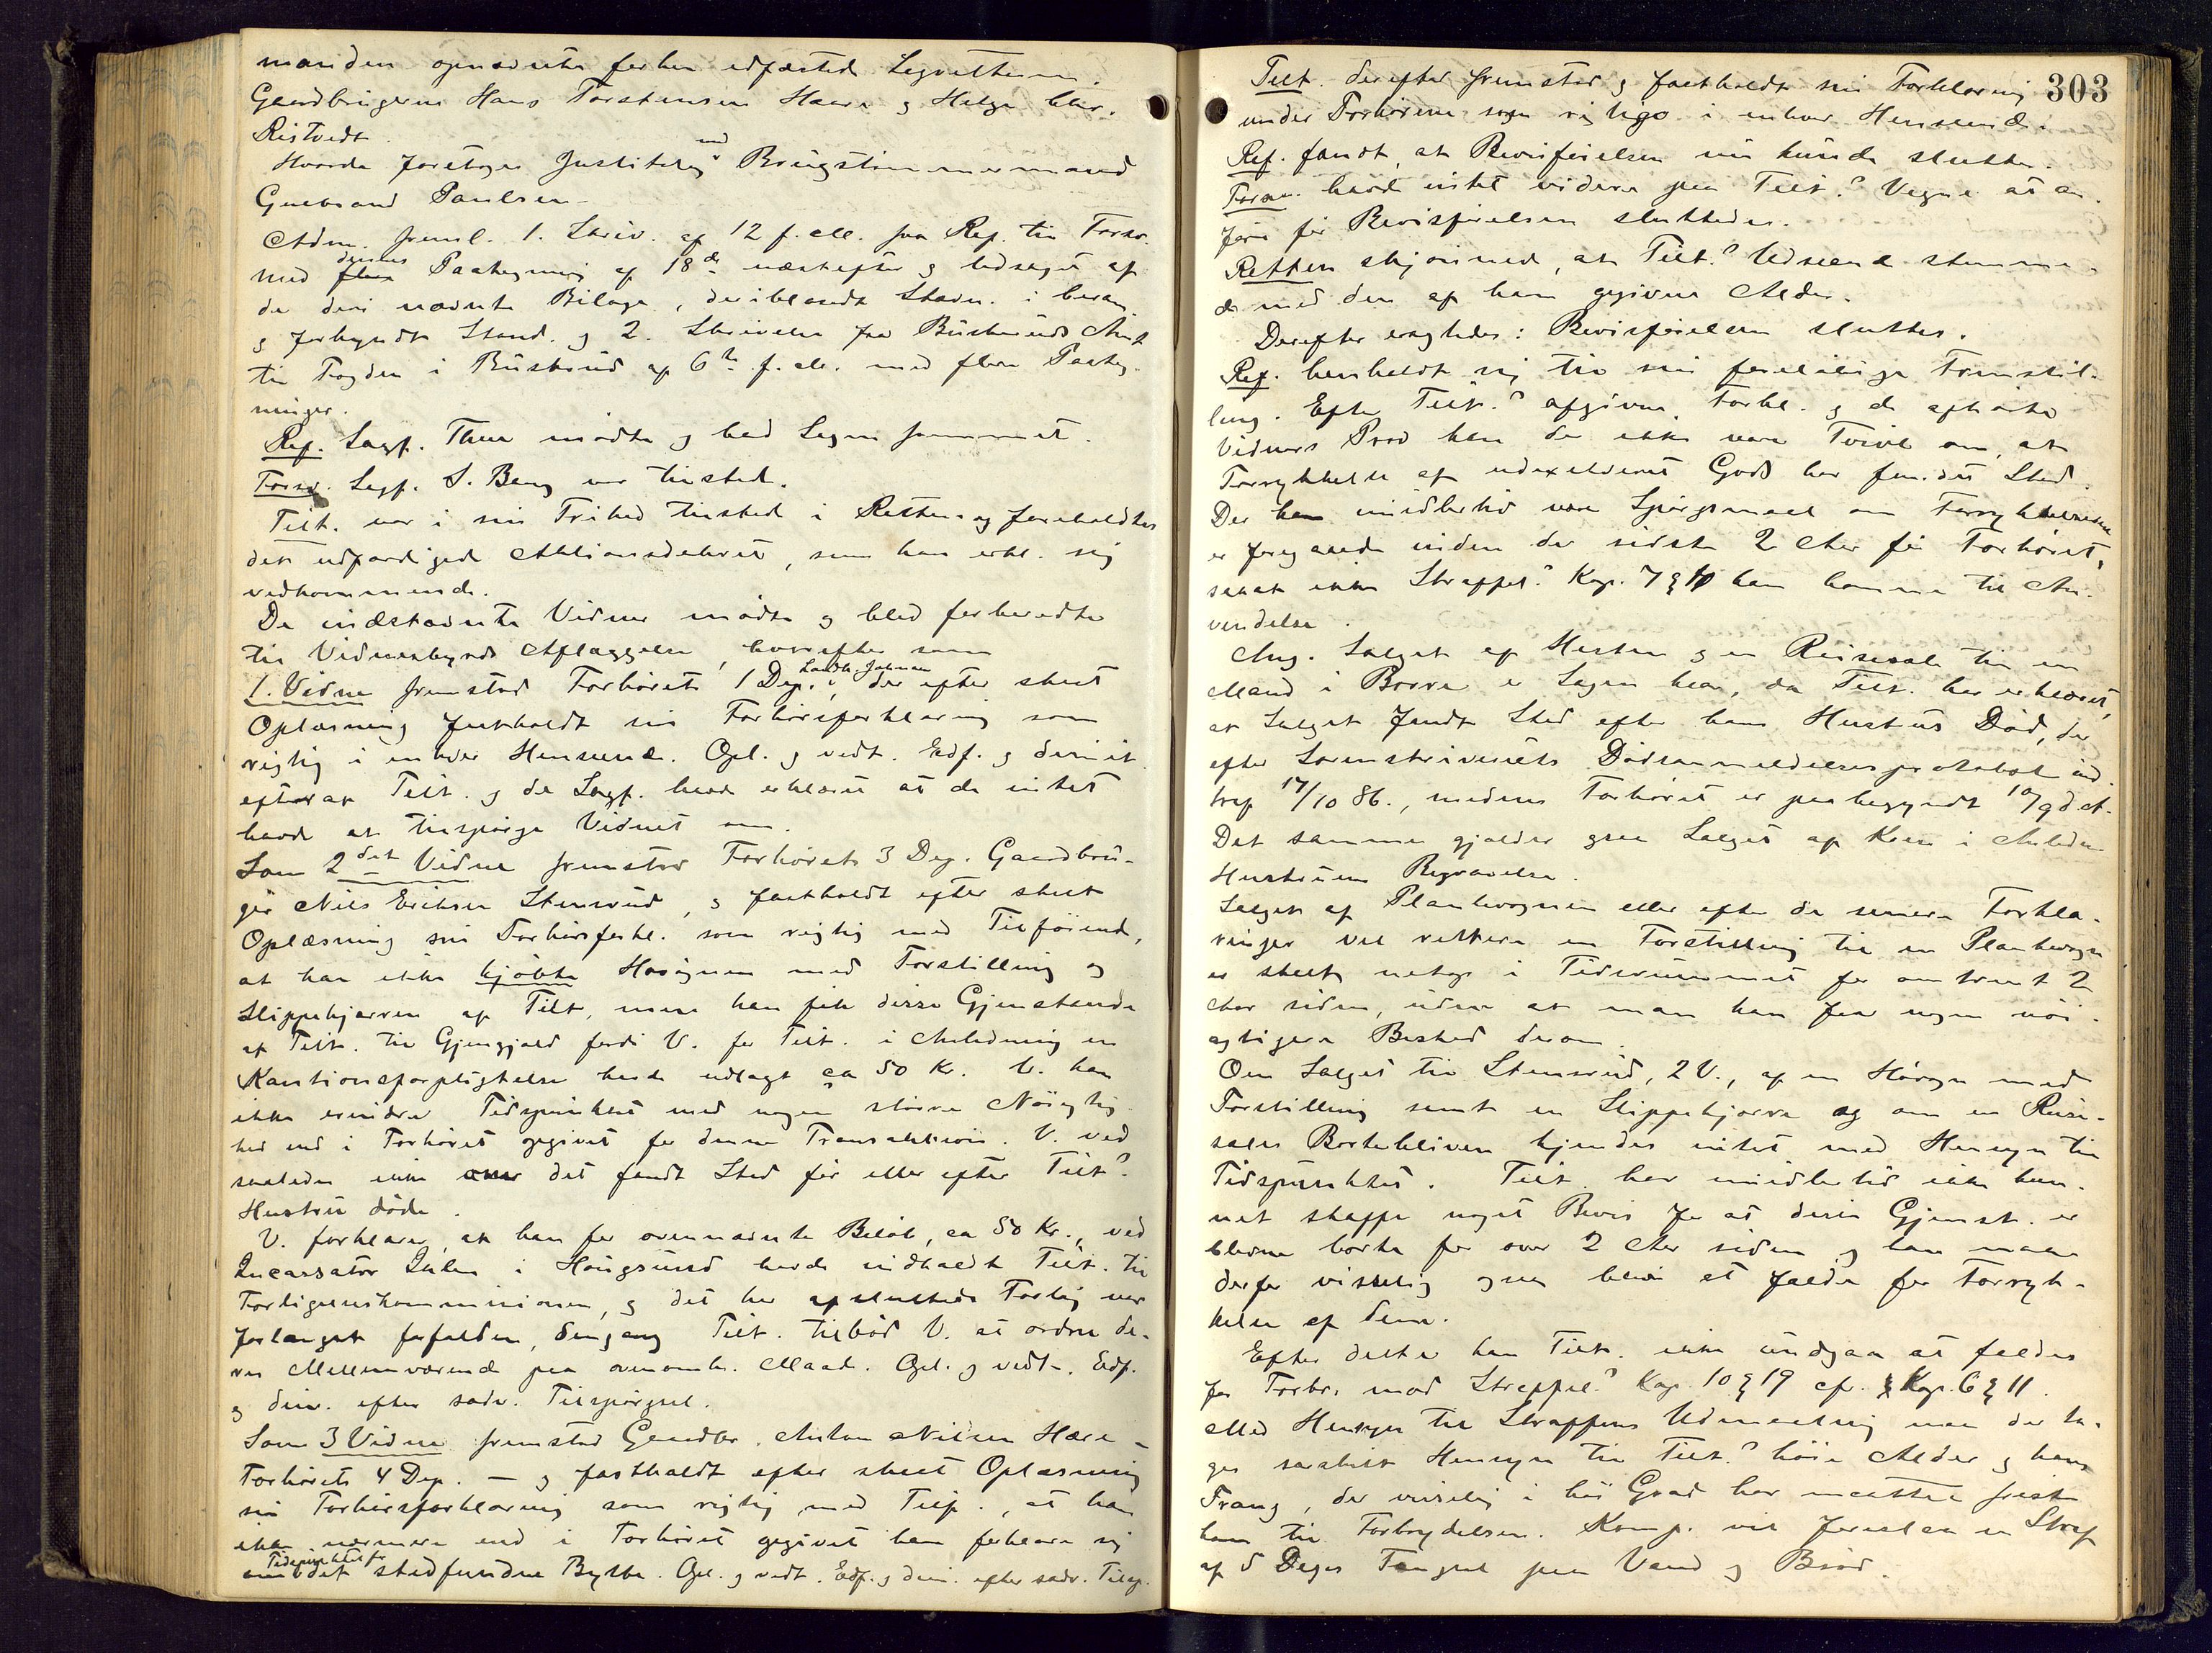 manden opnævnte før her edfæstede Lagrettem.
Gaardbrugerne Hans Torstensen Haare og Helge Chr.
Ristvedt
Hvorda foretoges Justitslag med Brugstømmermand
Gulbrand Paulsen.
Adm. freml. 1. Skriv. af 12 f. M. fra Ref. til Forsv.
med dennes Paategning af 18de næstefter og ledsaget af
de deri nævnte Bilage, deriblandt Stævn. i beram.
og forkyndt Stand. og 2. Skrivelse fra Buskeruds Amt
til Fogden i Buskerud af 6te f. M. med flere Paateg-
ninger.
Ref. Sagf. Thue mødte og bad Sagen fremmet.
Forsv. Sagf. S. Bang var tilstede.
Tilt. var i sin Frihed tilstede i Retten og foreholdtes
det udfærdigede Aktionsdekret, som han erkl. sig
vedkommende.
De indstævnte Vidner mødte og blev forberedte
til Vidnesbyrds Aflæggelse, hvorefter som
1. Vidne fremstod Forhørets 1 Dep., Landh. Johnsen der efter skeet
Oplæsning fastholdt sin Forhørsforklaring som
rigtig i enhver Henseende. Opl. og vedt. Edf. og dimit.
efterat Tilt. og de Sagf. havde erklæret at de intet
havde at tilspørge Vidnet om.
Som 2det Vidne fremstod Forhørets 3 Dep. Gaardbru-
ger Nils Eriksen Stensrud, og fastholdt efter skeet
Oplæsning sin Forhørsforkl. som rigtig med Tilføiende,
at han ikke kjøbte Høvognen med Forstilling og
Slippekjærren af Tilt., men han fik disse Gjenstande
af Tilt. til Gjengjæld fordi V. for Tilt. i Anledning en
Kautionsforpligtelse havde udlagt ca 50 Kr. V. kan
ikke erindre Tidspunktet med nogen større Nøiagtig-
hed end i Forhøret opgivet for denne Transaktion. V. ved
saaledes ikke om det fandt Sted før eller efter Tilts
Hustru døde.
V. forklarer, at han for ovennævnte Beløb, ca 50 Kr., ved
Incassator i Hougsund havde indkaldt Tilt. til
Forligelseskommissionen, og det her afsluttede Forlig var
forlængst forfalden, dengang Tilt. tilbød V. at ordne de-
res Mellemværende paa ovenomh. Maade. Opl. og vedt. Edf.
og dim. efter sædv. Tilspørgsel.
Som 3 Vidne fremstod Gaardbr. Anton Nilsen Hære –
Forhørets 4 Dep. – og fastholdt efter skeet Oplæsning
sin Forhørsforklaring som rigtig med Tilf., at han
ikke nærmere end i Forhøret opgivet kan forklare sig
om Tidspunktet for det stedfundne Bytte. Opl. og vedt. Edf. og dim. efter sædv. Tilsp.
303
Tilt. derefter fremstod og fastholdt sin Forklaring
under Forhørene som rigtige i enhver Henseende.
Ref. fandt, at Bevisførelsen nu kunde sluttes.
Forsv. havde intet videre paa Tilts Vegne at an-
føre før Bevisførelsen sluttedes.
Retten skjønnede, at Tilts Udseende stemme-
de med den af ham opgivne Alder.
Derefter eragtedes: Bevisførelsen sluttes.
Ref. henholdt sig til sin foreløbige Fremstil-
ling. Efter Tilts afgivne Forkl. og de afhørte
Vidners Prov kan der ikke være Tvivl om, at
Forrykkelse af udexekveret Gods har fundet Sted.
Der kan imidlertid være Spørgsmaal om Forrykkelserne
er foregaaede inden de sidste 2 Aar før Forhøret,
saaat ikke Straffels Kap. 7 § 10 kan komme til An-
vendelse.
Ang. Salget af Hesten og en Reisesale til en
Mand i Borre er Sagen klar, da Tilt. har erklæret,
at Salget fandt Sted efter hans Hustrus Død, der
efter Sorenskriveriets Dødsanmeldelsesprotokol ind-
traf 17/10 86., medens Forhøret er paabegyndt 10/9 d. A.
Det samme gjælder ogsaa Salget af Koen i Anledn.
Hustruens Begravelse.
Salget af Plankevognen eller efter de senere Forkla-
ringer vel rettere en Forstilling til en Plankevogn
er skeet netop i Tidsrummet for omtrent 2
Aar siden, uden at man kan faa nogen nøi-
agtigere Besked derom.
Om Salget til Stensrud, 2 V., af en Høvogn med
Forstilling samt en Slippekjærre og om en Reise-
sales Bortebliven kjendes intet med Hensyn til
Tidspunktet. Tilt. har imidlertid ikke kun-
net skaffe noget Bevis for at disse Gjenst. er
blevne borte for over 2 Aar siden og han maa
derfor visselig ogsaa blive at fælde for Forryk-
kelse af dem.
Efter dette kan Tilt. ikke undgaa at fældes
for Forbr. mod Straffels Kap. 10 § 19 cfr. Kap. 6 § 11.
Med Hensyn til Straffens Udmaaling maa der ta-
ges særskilt Hensyn til Tilts høie Alder og hans
Trang, der visselig i høi Grad har maattet friste
ham til Forbrydelsen. Komp. vil foreslaa en Straf
af 5 Dages Fængsel paa Vand og Brød.